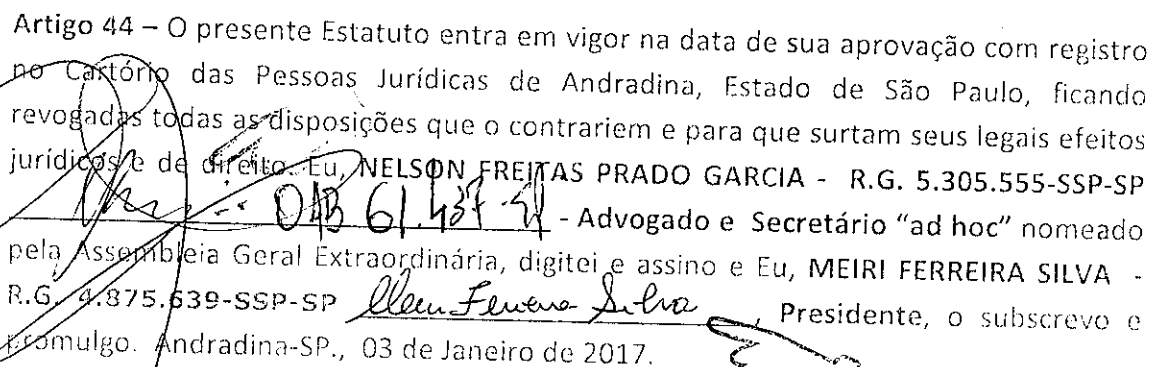 Artigo 44 – O presente Estatuto entra em vigor na data de sua aprovação com registro
no Cartório das Pessoas Jurídicas de Andradina, Estado de São Paulo, ficando
revogadas todas as disposições que o contrariem e para que surtam seus legais efeitos
jurídicos e de direito. Eu, NELSON FREITAS PRADO GARCIA - R.G. 5.305.555-SSP-SP
- Advogado e Secretário “ad hoc” nomeado
pela Assembleia Geral Extraordinária, digitei e assino e Eu, MEIRI FERREIRA SILVA -
R.G. 4.875.639-SSP-SP Meiri Ferreira Silva, Presidente, o subscrevo e
promulgo. Andradina-SP., 03 de Janeiro de 2017.